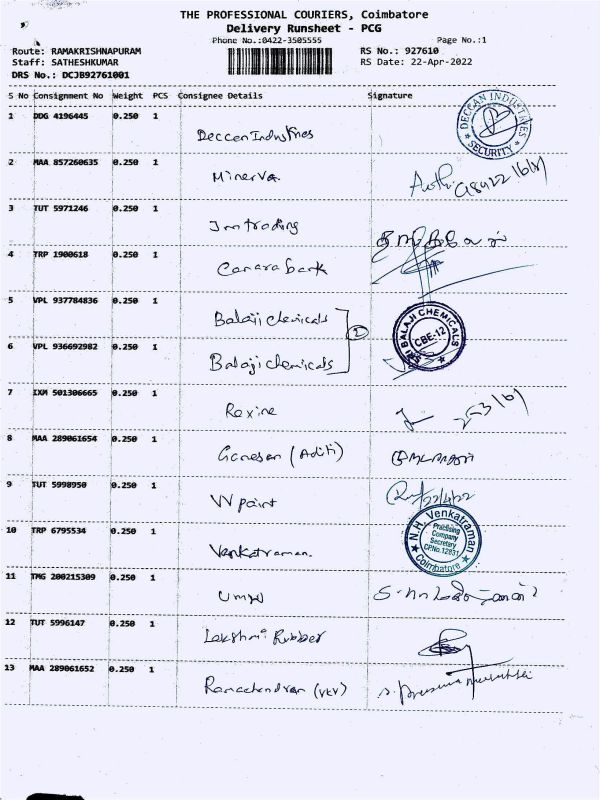 THE PROFESSIONAL COURIERS, Coimbatore
Delivery Runsheet - PCG
Phone No.:0422-3505555 Page No.:1
Route: RAMAKRISHNAPURAM RS No.: 927610
Staff: SATHESHKUMAR RS Date: 22-Apr-2022
DRS No.: DCJB92761001
S No Consignment No Weight PCS Consignee Details Signature
1 DDG 4196445 0.250 1 Deccan Industries
DECCAN INDUSTRIES
* SECURITY *
2 MAA 857260635 0.250 1 Minerva
3 TUT 5971246 0.250 1 Jm trading
4 TRP 1900618 0.250 1 Canara bank
5 VPL 937784836 0.250 1 Balaji chemicals
BALAJI CHEMICALS
CBE-12
6 VPL 936692982 0.250 1 Balaji chemicals
2
7 IXM 501306665 0.250 1 Roxine
8 MAA 289061654 0.250 1 Ganesan (Aditi)
9 TUT 5998950 0.250 1 VV paint
22/4/22
10 TRP 6795534 0.250 1 Venkatraman.
N.H. Venkatraman
Practising
Company
Secretary
CP.No.12831
* Coimbatore *
11 TMG 200215309 0.250 1
12 TUT 5996147 0.250 1 Lakshmi Rubber
13 MAA 289061652 0.250 1 Ramachandran (VKV)